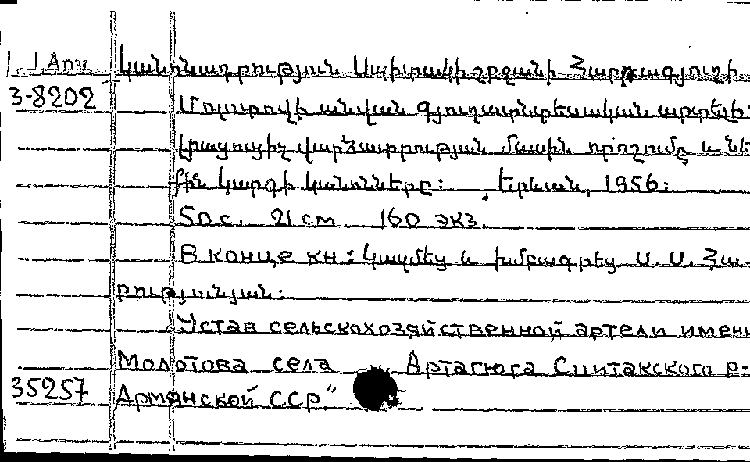 1 Арм Կանոնադրություն Սպիտակի շրջանի Հարթագյուղի
3-8202 Մոլոտովի անվան գյուղատնտեսական արտելի:
Լրացուցիչ վարձատրության մասին որոշումը և նե
քին կարգի կանոնները: Երևան, 1956:
50 с. 21 см 160 экз.
В конце кн: Կազմեց և խմբագրեց Ա. Ա. Հա
րությունյան:
"Устав сельскохозяйственной артели имен
Молотова села Артагюга Спитакского р-
35257 Армянской ССР."